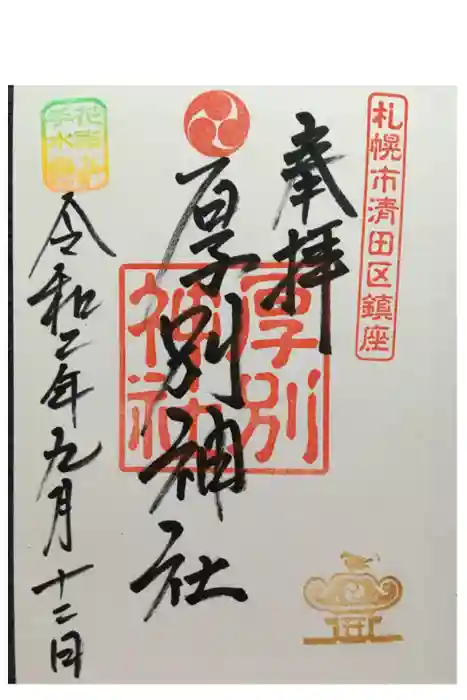 札幌市清田区鎮座
奉拝
厚別神社
厚別
神社
令和二年九月十二日